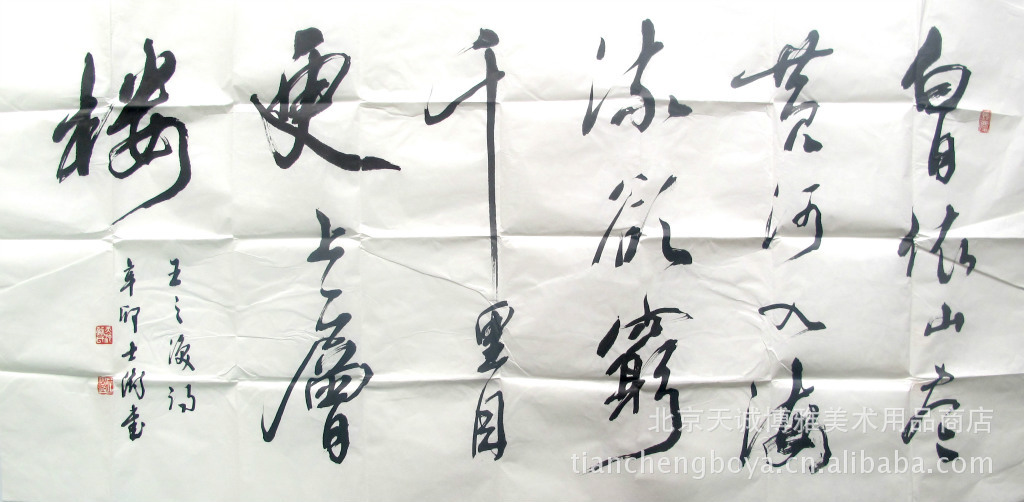 白日依山盡
黄河入海
流欲窮
千里目
更上一層
樓
王之渙詩
辛卯士書
北京天诚博雅美术用品商店
tianchengboya.cn.alibaba.com